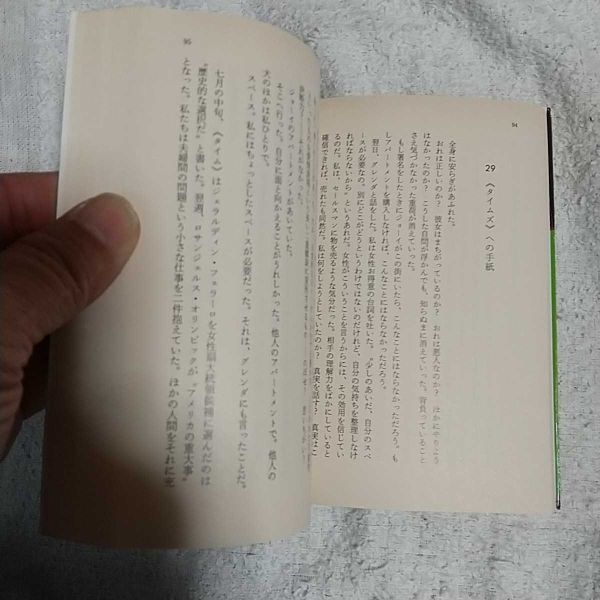 94
29 《タイムズ》への手紙
全身に安らぎがあふれた。
おれは正しいのか? 彼女はまちがっているのか? おれは悪人なのか? ほかにやりよう
はなかったのか? こうした自問が浮かんでも、知らぬまに消えていった。背負っていること
さえ気づかなかった重荷が消えていった。
もし署名をしたときにジョーイがこの街にいたら、こんなことにはならなかっただろう。も
しアパートメントを購入しなければ、こんなことにはならなかっただろう。
翌日、グレンダと話をした。私は女性お得意の台詞を吐いた。“少しのあいだ、自分のスペ
ースが必要なの。別にどこがどうというわけではないのだけれど、自分の気持ちを整理しなけ
ればならないから”というあれだ。女性がこういうことを言うからには、その効用を信じてい
るのだ。私は、セールスマンに物を売るような気分だった。相手の理解力をばかにしていると
確信できれば、売れたも同然だ。私は何をしようとしていたのか? 真実を話す? 真実はこ
95
ジョーイのアパートメントがあいていた。
そこへ行った。自分に面と向かえることがうれしかった。他人のアパートメントで。他人の
犬のほかは私ひとりで。
スペース。私にはちょっとしたスペースが必要だった。それは、グレンダにも言ったことだ。
七月の中旬、《タイム》はジェラルディン・フェラーロを女性副大統領候補に選んだのは
“歴史的な選択だ”と書いた。翌週、ロサンジェルス・オリンピックが“アメリカの重大事”
となった。私たちは夫婦間の問題という小さな仕事を二件抱えていた。ほかの人間をそれに充